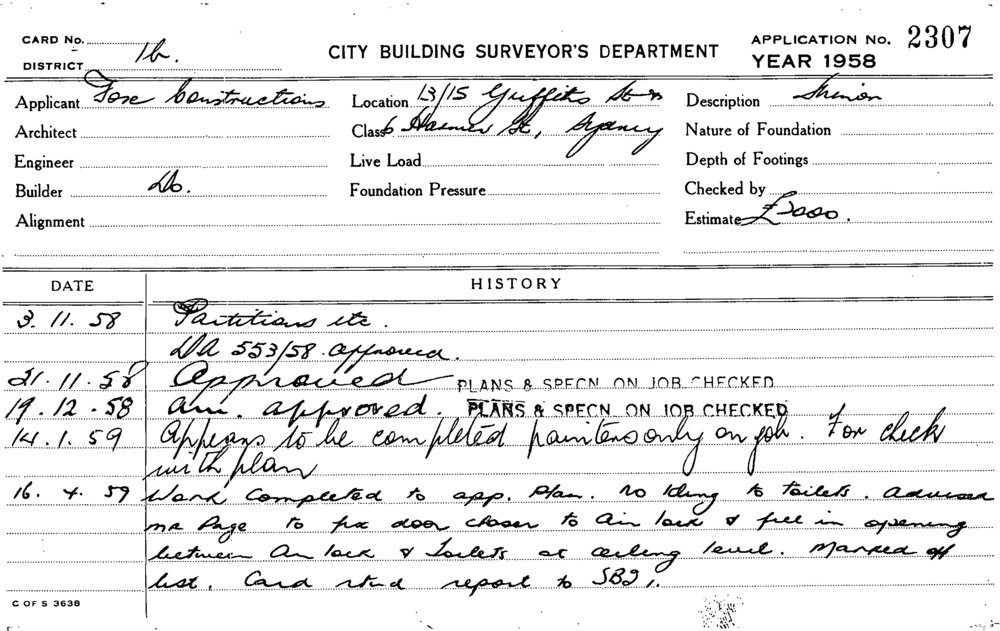 CARD No.
DISTRICT 1b.
CITY BUILDING SURVEYOR'S DEPARTMENT
APPLICATION No. 2307
YEAR 1958
Applicant Constructions
Location 13/15 Griffiths St
Description
Architect
Class Harmer St, Sydney
Nature of Foundation
Engineer
Live Load
Depth of Footings
Builder Do.
Foundation Pressure
Checked by
Alignment
Estimate
DATE
HISTORY
3. 11. 58 Partitions etc.
DA 553/58 approved.
21. 11. 58 Approved PLANS & SPECN ON JOB CHECKED
19. 12. 58 am. approved. PLANS & SPECN ON JOB CHECKED
14. 1. 59 Appears to be completed painters only on job. For check
with plan
16. 4. 59 Work Completed to app. Plan. No to toilets. Advised
Mr Page to fix door closer to Air lock & fill in opening
between Air lock & Toilets at ceiling level. Marked off
list. Card retnd report to
C OF S 3638